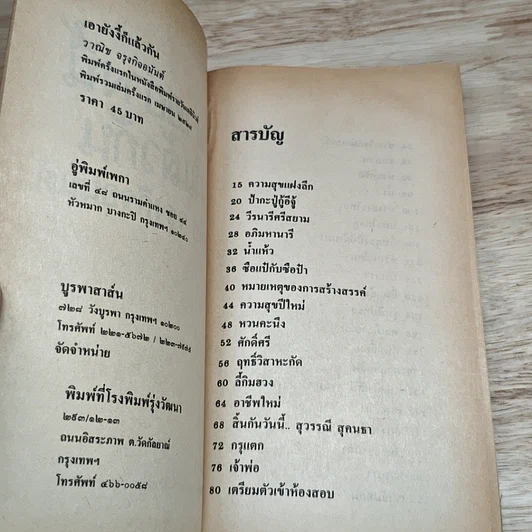 เอายังงี้ก็แล้วกัน
วาณิช จรุงกิจอนันต์
พิมพ์ครั้งแรกในหนังสือพิมพ์
พิมพ์รวมเล่มครั้งแรก เมษายน
ราคา 45 บาท
อู่พิมพ์เพกา
เลขที่ ๔๘ ถนนรามคำแหง ซอย ๔๔
หัวหมาก บางกะปิ กรุงเทพฯ ๑๐๒๔๐
บูรพาสาส์น
๗๒๘ วังบูรพา กรุงเทพฯ ๑๐๒๐๐
โทรศัพท์
จัดจำหน่าย
พิมพ์ที่โรงพิมพ์รุ่งวัฒนา
๒๙๓/๑๒-๑๓
ถนนอิสระภาพ ต.วัดกัลยาณ์
กรุงเทพฯ
โทรศัพท์ ๔๖๖-๐๐๕๘
สารบัญ
15 ความสุขแฝงลึก
20 ป้ากะปู่กู้อีจู้
24 วีรนารีศรีสยาม
28 อภิมหานารี
32 น้ำแห้ว
36 ซือแป๋กับซือป้า
40 หมายเหตุของการสร้างสรรค์
44 ความสุขปีใหม่
48 หวนคะนึง
52 ศักดิ์ศรี
56 ฤทธิ์วิสาหะกัด
60 ลี้กิมฮวง
64 อาชีพใหม่
68 สิ้นกันวันนี้.. สุวรรณี สุคนธา
72 กรุแตก
76 เจ้าพ่อ
80 เตรียมตัวเข้าห้องสอบ